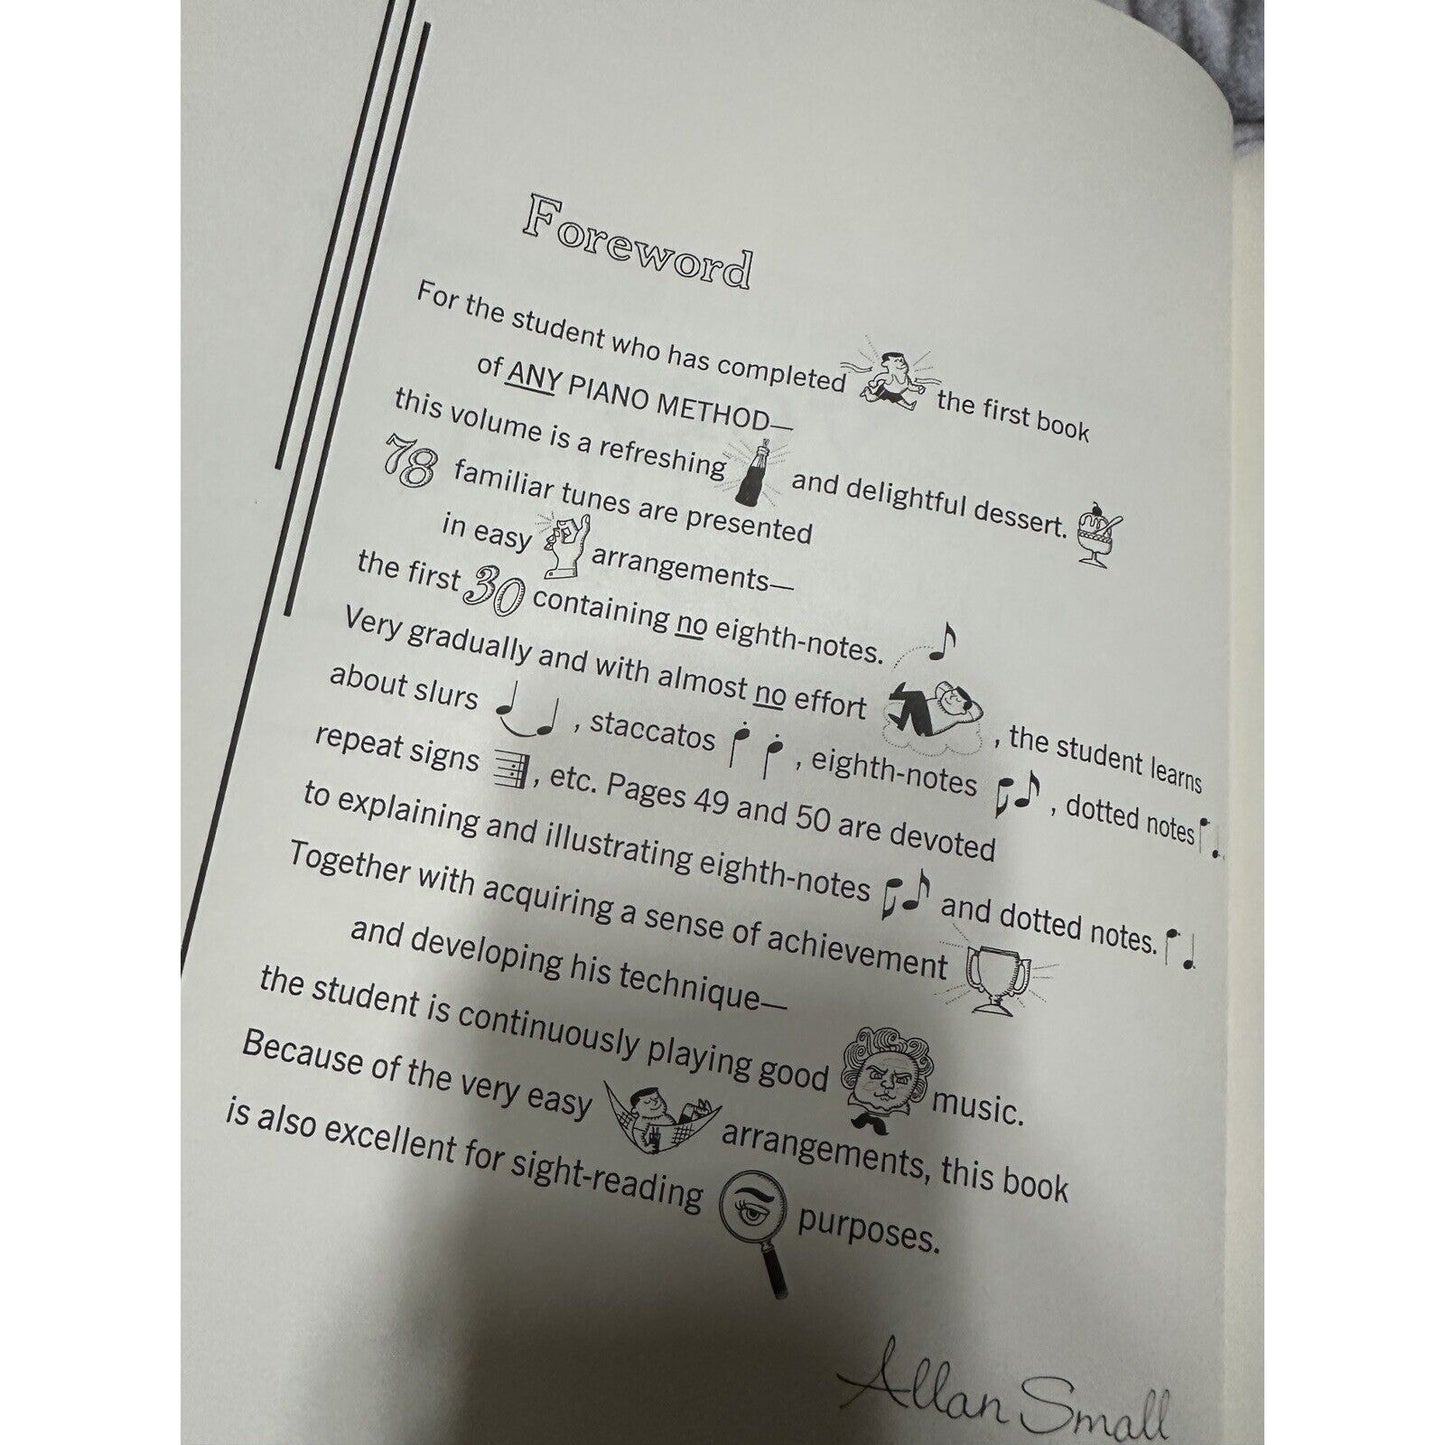 Foreword
For the student who has completed the first book
of ANY PIANO METHOD—
this volume is a refreshing and delightful dessert.
78 familiar tunes are presented
in easy arrangements—
the first 30 containing no eighth-notes.
Very gradually and with almost no effort , the student learns
about slurs , staccatos , eighth-notes , dotted notes
repeat signs , etc. Pages 49 and 50 are devoted
to explaining and illustrating eighth-notes and dotted notes.
Together with acquiring a sense of achievement
and developing his technique—
the student is continuously playing good music.
Because of the very easy arrangements, this book
is also excellent for sight-reading purposes.
Allan Small